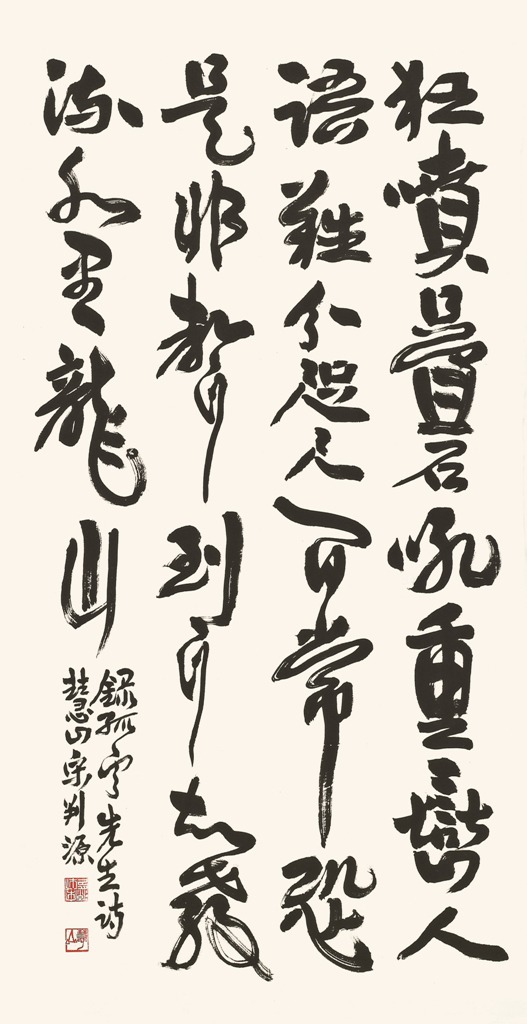 狂噴疊石吼重巒人
語難分咫尺間常恐
是非聲到耳故教
流水盡龍山
錄孤雲先生詩
慧山宋判源